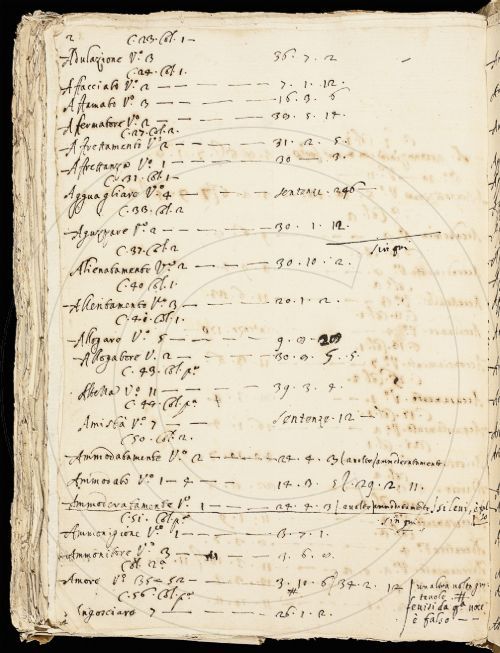 2 C. 23. Col. 1 —
Adulazione V.º 3 36. 7. 2
C. 24. Col. 1.
Affacciato V.º 2 — — — — — 7. 1. 12.
Affamato V.º 3 — — — — — 16. 3. 6
Affermatore V.º 2 — — — — 39. 5. 14.
C. 27. Col. 2.
Affrettamento V.º 2 — — — — 31. 2. 5.
Affrettanza V.º 1 — — — — 30 — 3.
C. 31. Col. 1 —
Agguagliare V.º 4 — — — — Sentenze. 246 —
C. 33. Col. 2
Aguzzare V.º 2 — — — — 30. 1. 12.
sin qui
C. 37. Col. 2
Alienatamente V.º 2 — — — — 30. 10. 2.
C. 40. Col. 1.
Allentamento V.º 3 — — — — 20. 1. 2.
C. 41. Col. 1.
Allegare V.º 5 — — — — 9. 0.
Allegatore V.º 2 — — — — 30. 9. 5. 5.
C. 43. Col. p.º
V.º 11 — — — — 39. 3. 4.
C. 44. Col. p.º
Amistà V.º 7 — — — — Sentenze. 12 —
C. 50. Col. 2.
Ammodatamente V.º 2 — — — — 24. 4. 3
Ammodato V.º 1 — 4 — — — — 14. 3. 5 29. 2. 11.
Ammoderatamente V.º 1 — — — — 24. 4. 3
C. 51. Col. p.º sin qui
Ammonigione V.º 1 — — — — 3. 7. 1.
Ammonitore V.º 3 — — — — 4. 6. 0.
Col. 2.ª
Amore V.º 35 — 52 — — — — 3. 10. 6 / 34. 2. 12
C. 56. Col. p.º
Angosciare 7 — — — — 26. 1. 2.
è falso — —